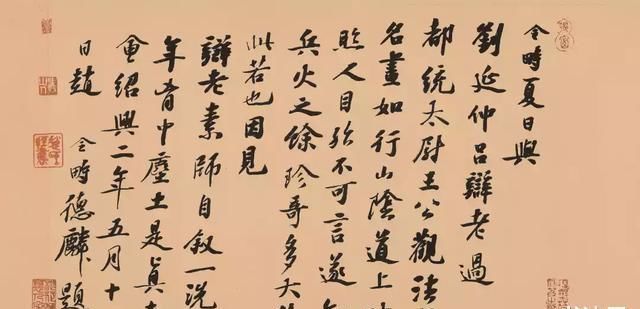 令時夏日與
劉延仲呂辯老過
都統太尉王公觀法
名畫如行山陰道上
人目殆不可言遂
兵火之餘珍奇多大
此若也因見
辯老素師自叙一洗
年胷中塵土是真
會紹興二年五月十
日趙 令時德麟題